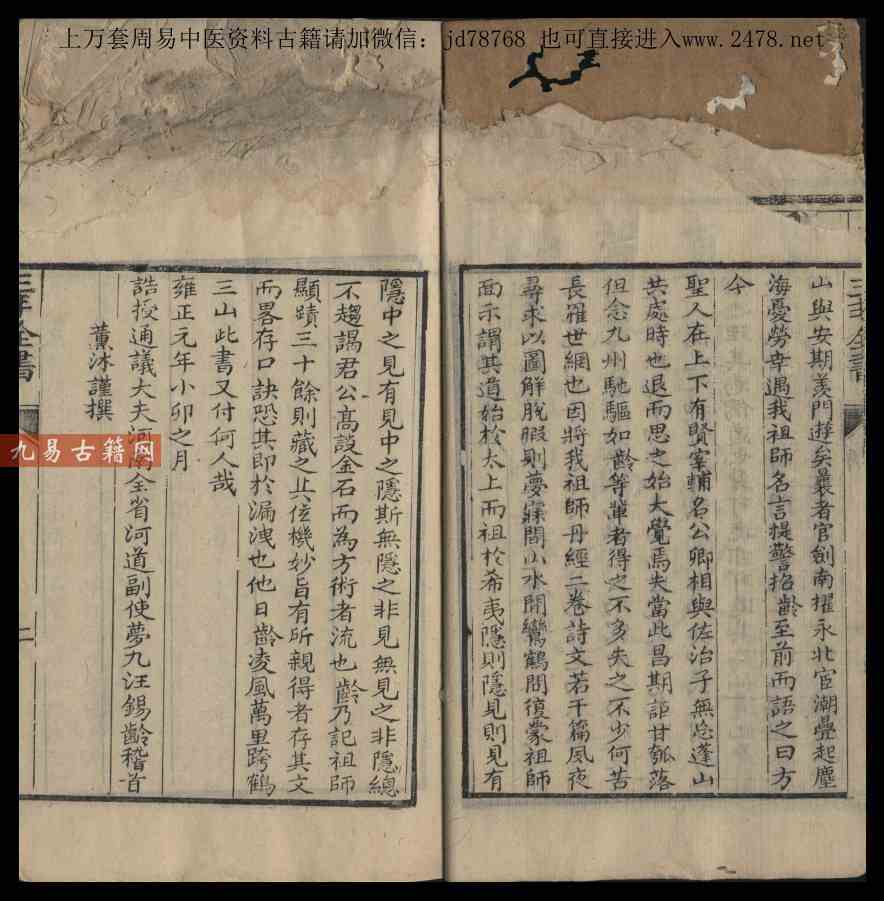 上万套周易中医资料古籍请加微信：jd78768 也可直接进入www.2478.net
山與安期羨門遊矣曩者官劍南擢永北宦潮疊起塵
海憂勞幸遇我祖師名言提警招齡至前而語之曰方
今
聖人在上下有賢宰輔名公卿相與佐治子無忘蓬山
共處時也退而思之始大覺焉夫當此昌期詎甘瓠落
但念九州馳驅如齡等輩者得之不多失之不少何苦
長羅世網也因將我祖師丹經二卷詩文若干篇風夜
尋求以圖解脫暇則夢寐間山水開鸞鶴間復蒙祖師
面示謂其道始於太上而祖於希夷隱則隱見則見有
三丰全書
隱中之見有見中之隱斯無隱之非見無見之非隱總
不趨謁君公高談金石而為方術者流也齡乃記祖師
顯蹟三十餘則藏之其位機妙旨有所親得者存其文
而畧存口訣恐其即於漏洩也他日齡凌風萬里跨鶴
三山此書又付何人哉
雍正元年小卯之月
誥授通議大夫河南全省河道副使夢九汪錫齡稽首
薰沐謹撰
三丰全書
二
九易古籍网